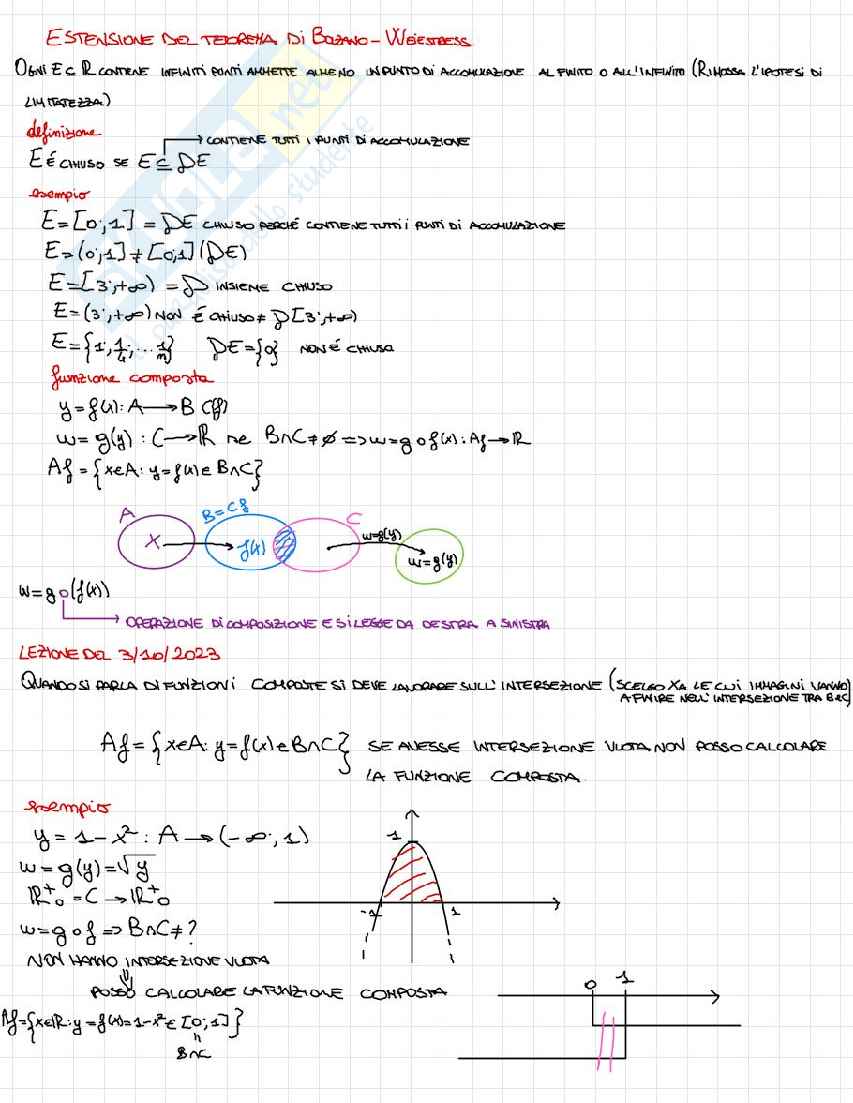 ESTENSIONE DEL TEOREMA DI BOZANO-WEIESTRESS
OGNI E ⊂ ℝ CONTENE INFINITI PUNTI AMMETTE ALMENO UN PUNTO DI ACCOMULAZIONE AL FINITO O ALL'INFINITO (RIMOSSA L'IPOTESI DI
LIMITATEZZA)
definizione
CONTIENE TUTTI I PUNTI DI ACCOMULAZIONE
E É CHIUSO SE E ⊆ DE
esempio
E = [0;1] = DE CHIUSO PERCHÉ CONTIENE TUTTI I PUNTI DI ACCOMULAZIONE
E = (0;1] ≠ [0;1] (DE)
E = [3;+∞) = D INSIEME CHIUSO
E = (3;+∞) NON É CHIUSO ≠ D[3;+∞)
E = {1; ... 1/n} DE = {0} NON É CHIUSO
funzione composta
y = f(x): A → B (Cf)
w = g(y): C → ℝ se B∩C ≠ ∅ => w = g o f(x): Af → ℝ
Af = {x∈A: y = f(x) ∈ B∩C}
A B = Cf C
X f(x) w=g(y) w=g(y)
w = g o (f(x))
OPERAZIONE DI COMPOSIZIONE E SI LEGGE DA DESTRA A SINISTRA
LEZIONE DEL 3/10/2023
QUANDO SI PARLA DI FUNZIONI COMPOSTE SI DEVE LAVORARE SULL'INTERSEZIONE (SCELGO XA LE CUI IMMAGINI VANNO
A FINIRE NELL'INTERSEZIONE TRA B e C)
Af = {x∈A: y = f(x) ∈ B∩C} SE AVESSE INTERSEZIONE VUOTA NON POSSO CALCOLARE
LA FUNZIONE COMPOSTA
esempio
y = 1 - x²: A → (-∞;1)
w = g(y) = √y
ℝ⁺₀ = C → ℝ⁺₀
w = g o f => B∩C ≠ ?
NON HANNO INTERSEZIONE VUOTA
1
-1 1
⇓
POSSO CALCOLARE LA FUNZIONE COMPOSTA
0 1
Af = {x∈ℝ: y = f(x) = 1-x² ∈ [0;1]}
"
B∩C